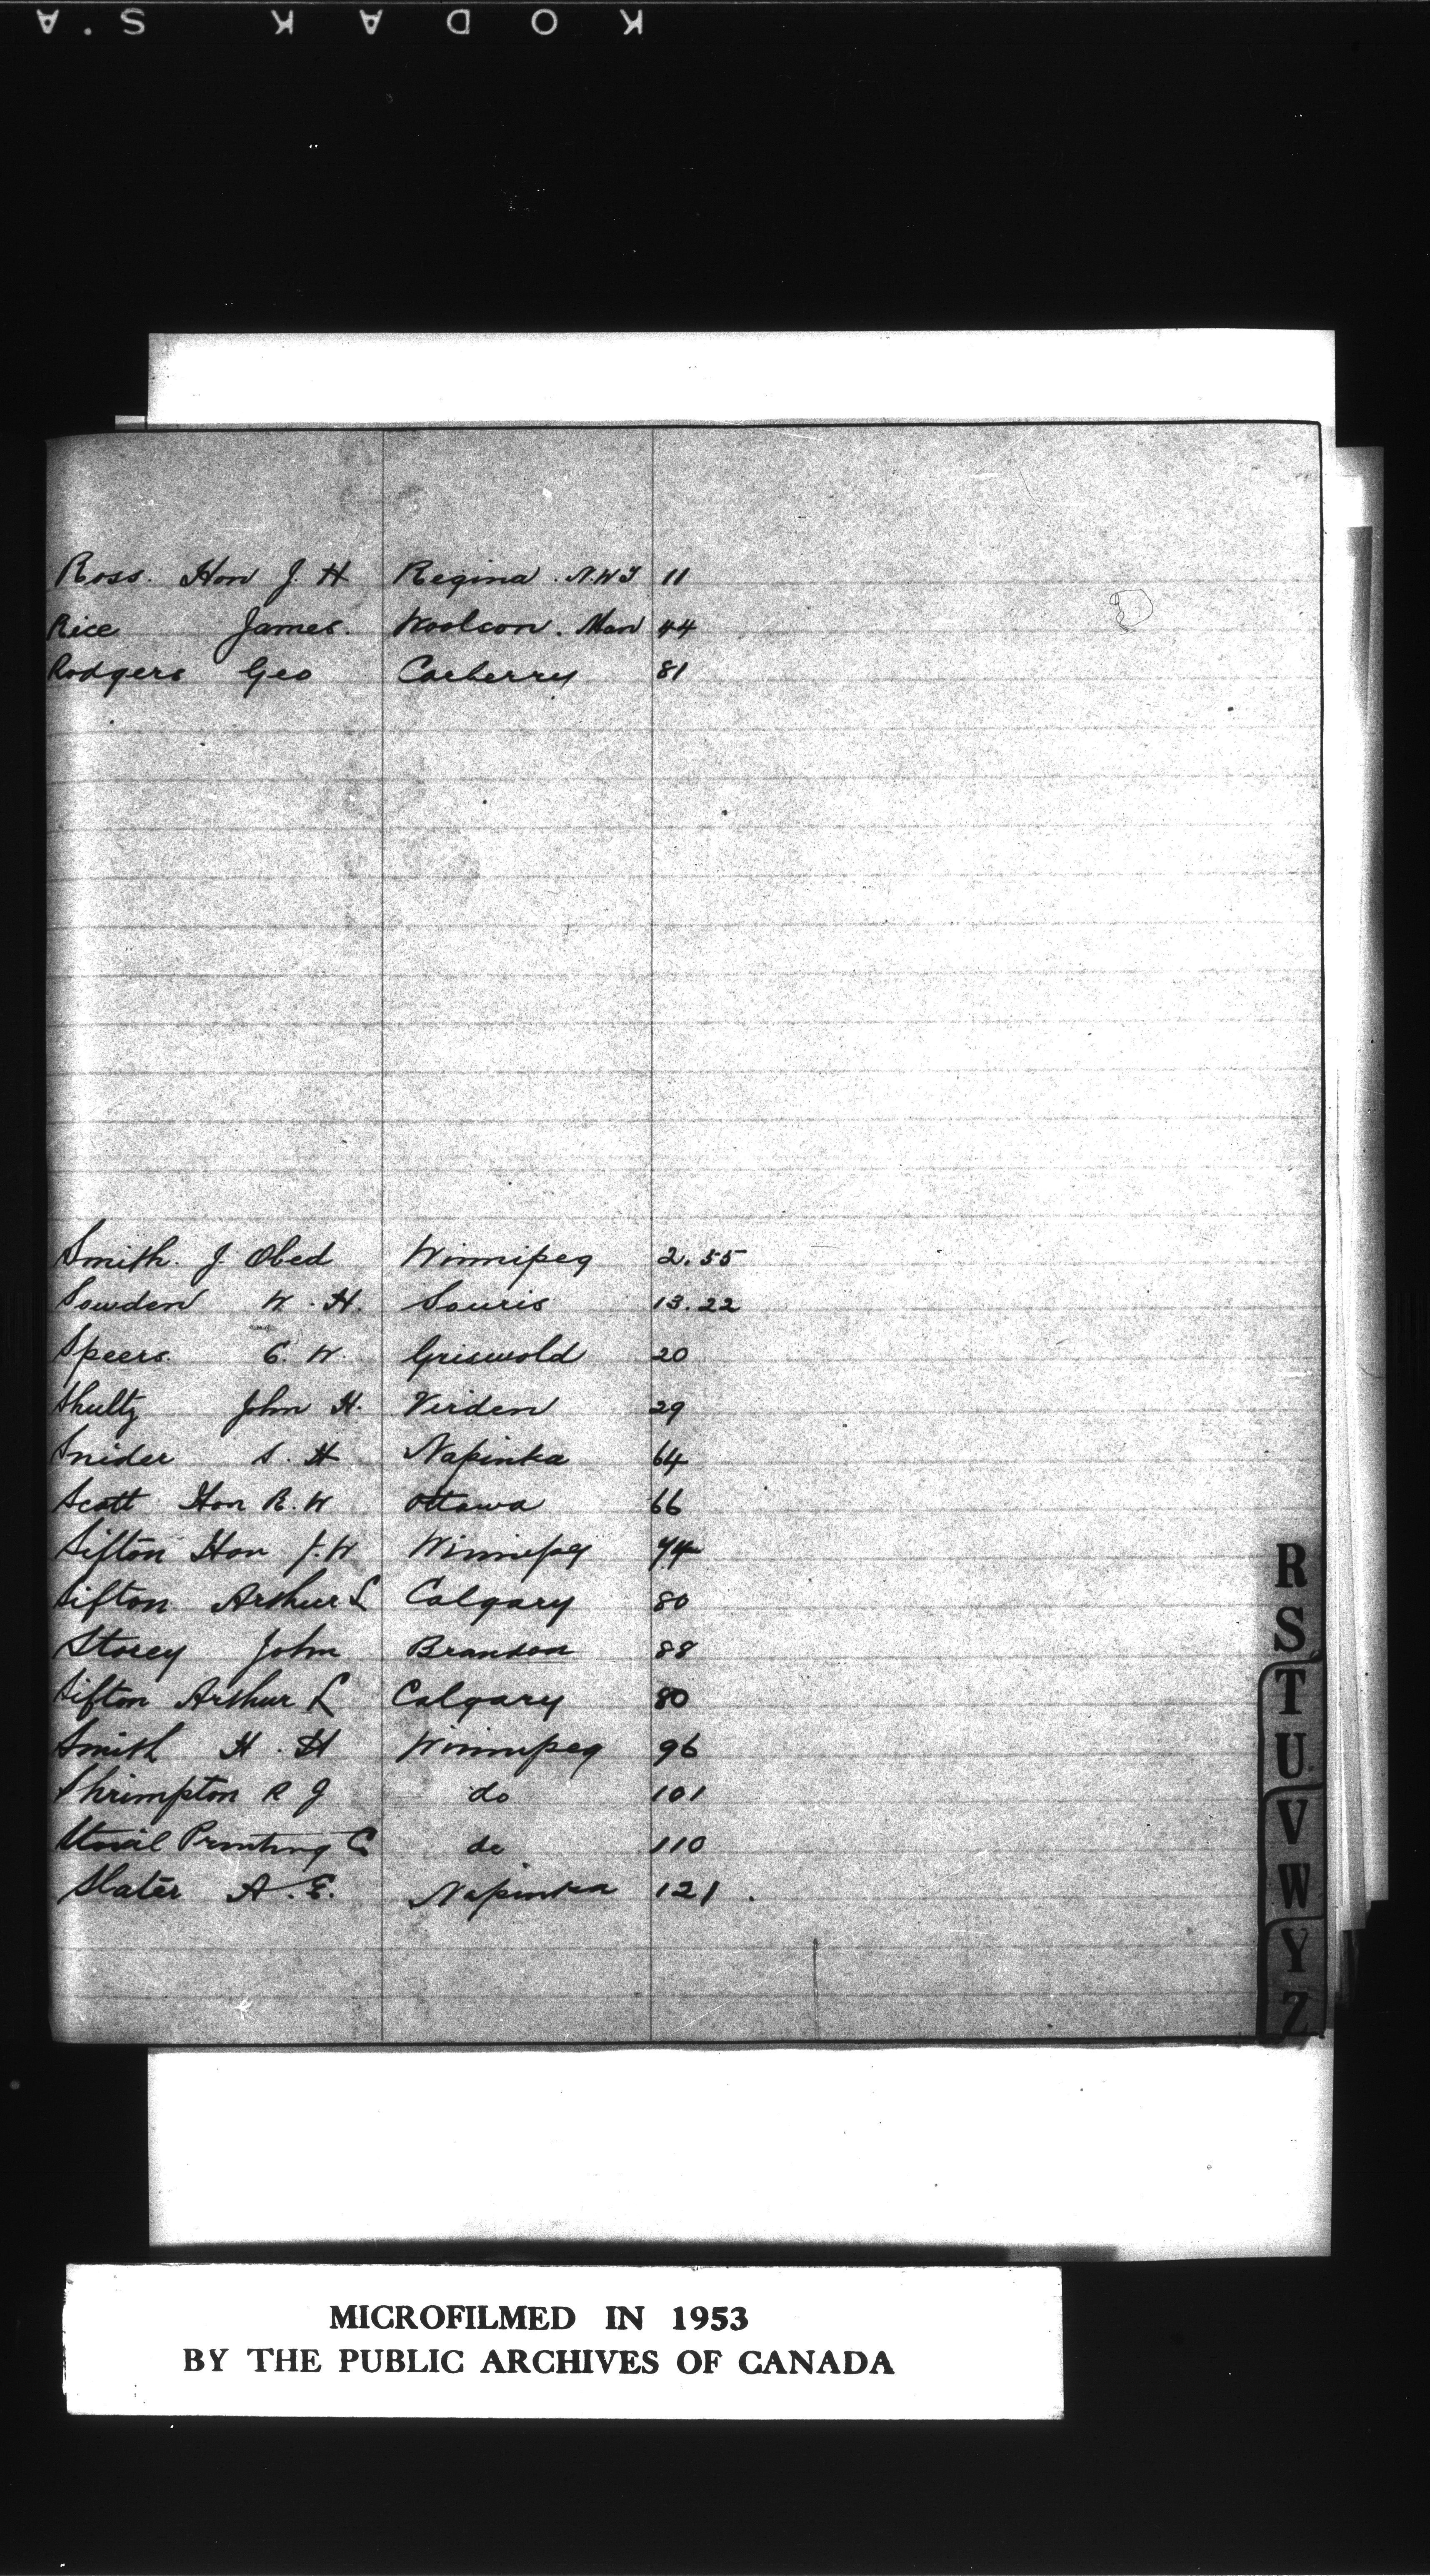 KODAK S.A
Ross. Hon J. H Regina. N.W.T 11
Rice James. Man 44
Rodgers Geo Carberry 81
Smith. J. Obed Winnipeg 2.55
Sowden W. H. Souris 13.22
Speers. C. W. Griswold 20
Shultz John H. Virden 29
Snider S. H Napinka 64
Scott Hon R. W Ottawa 66
Sifton Hon J. W Winnipeg 74
Sifton Arthur L Calgary 80
Storey John Brandon 88
Sifton Arthur L Calgary 80
Smith H. H Winnipeg 96
Shrimpton R J do 101
Stovil Printing Co do 110
Slater A. E. Napinka 121.
R
S
T
U
V
W
Y
Z
MICROFILMED IN 1953
BY THE PUBLIC ARCHIVES OF CANADA